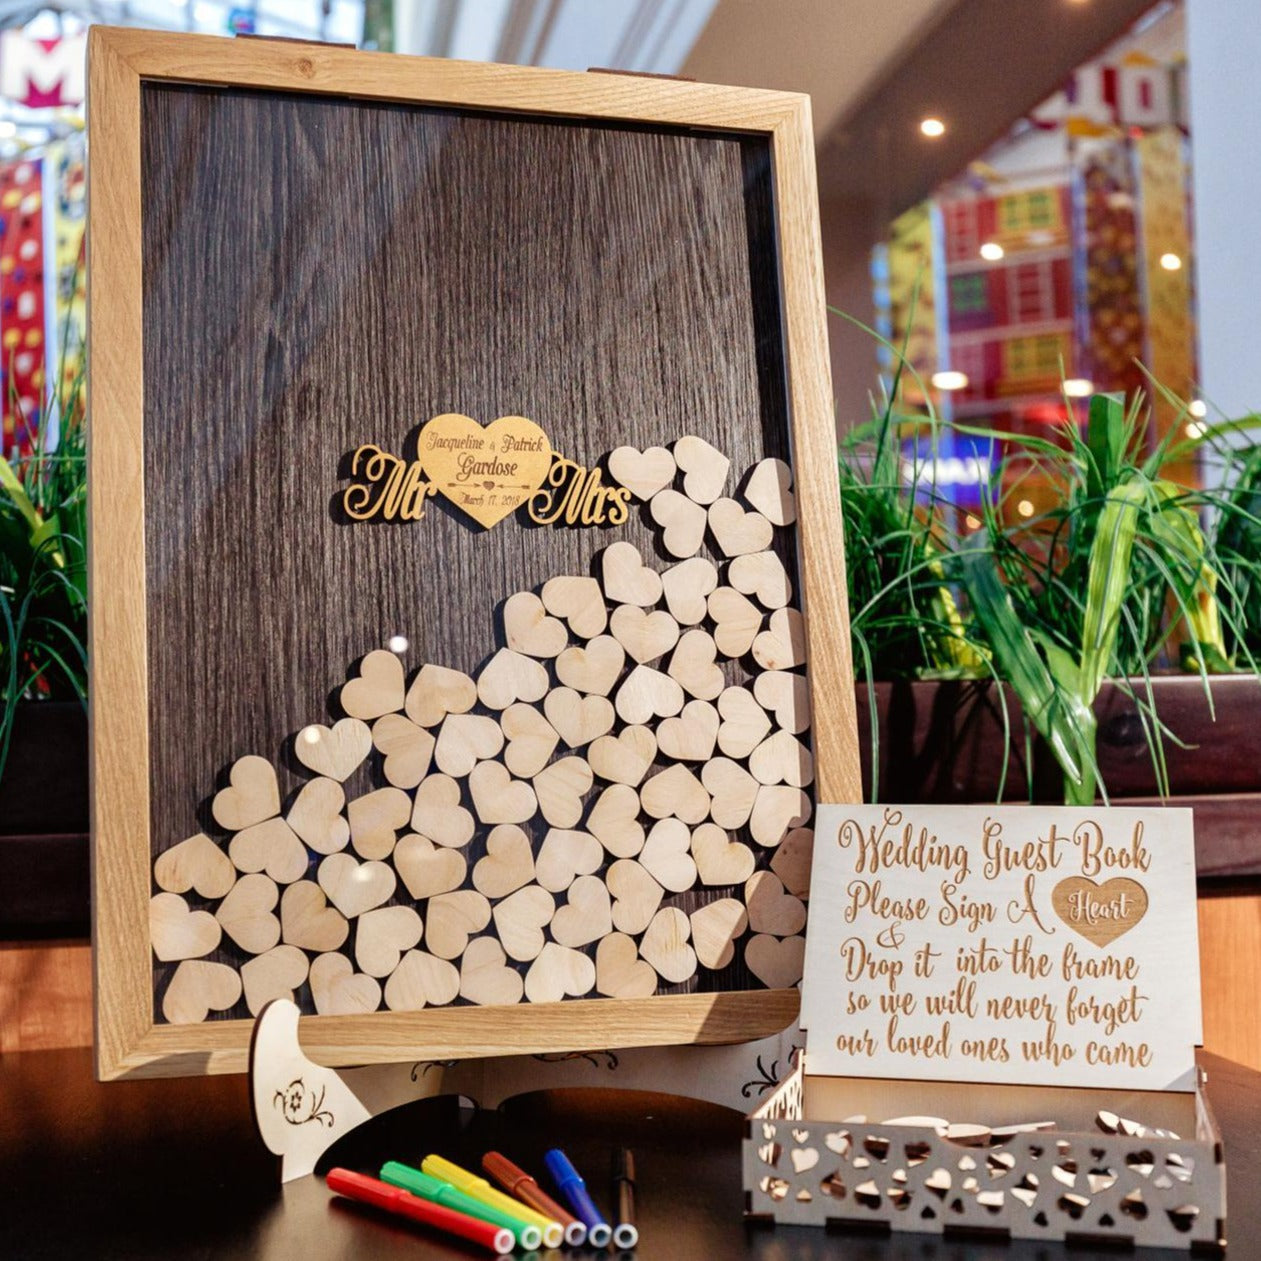 M
Jacqueline & Patrick
Gardose
March 17, 2018
Mr
Mrs
Wedding Guest Book
Please Sign A Heart
&
Drop it into the frame
so we will never forget
our loved ones who came